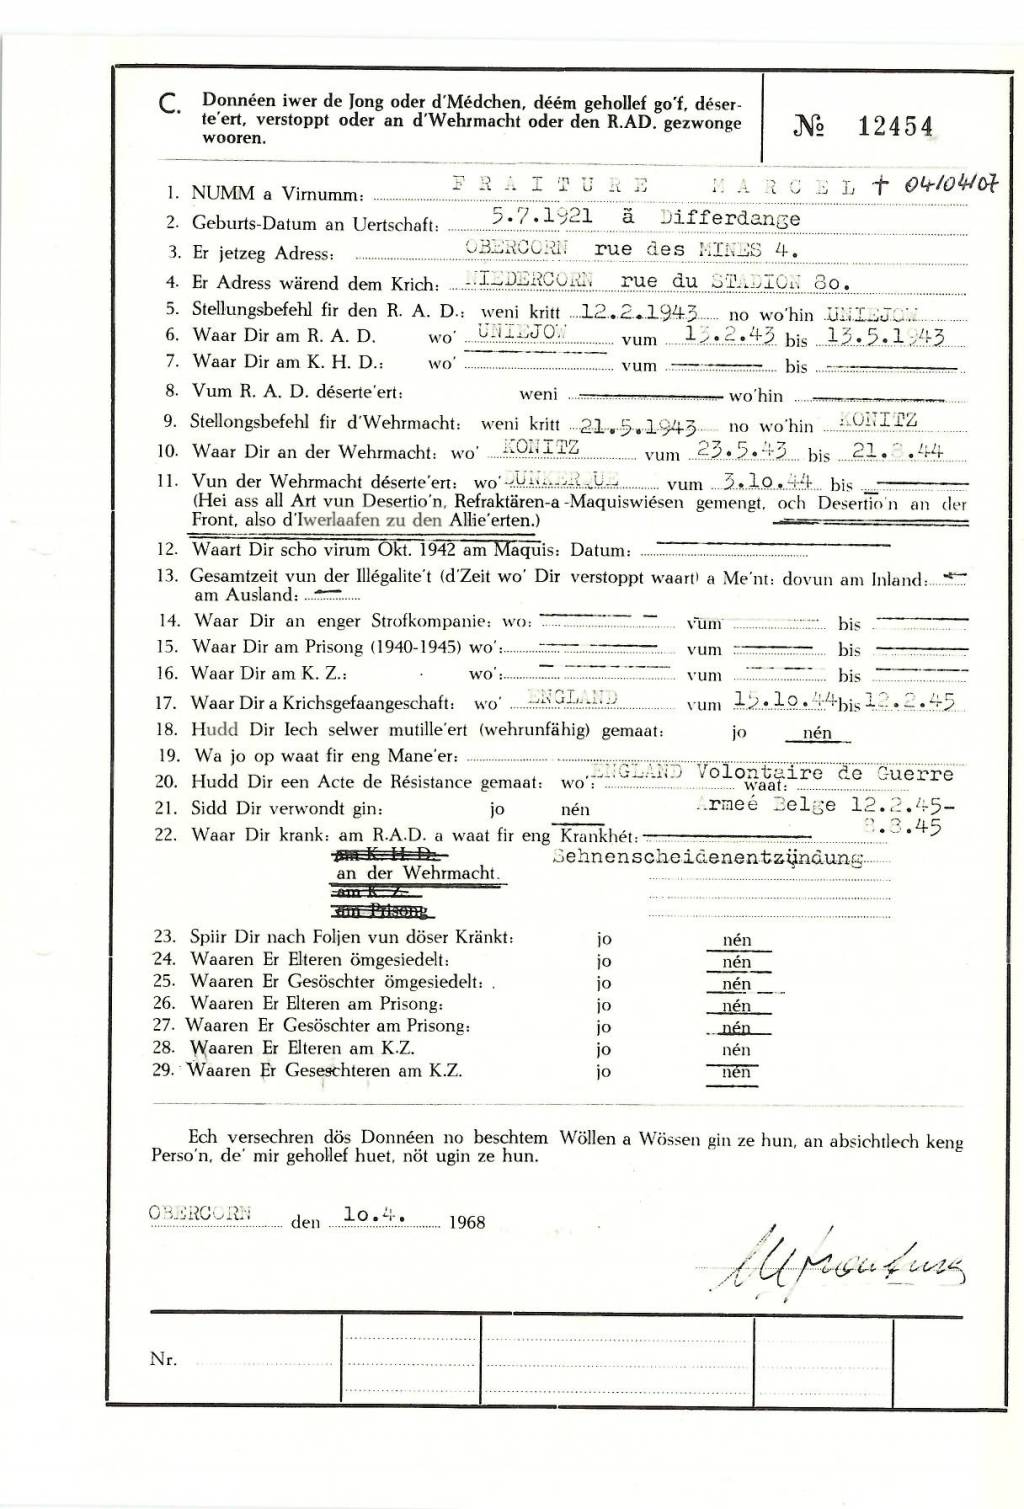 C. Donnéen iwer de Jong oder d'Médchen, déém gehollef go'f, déser-
te'ert, verstoppt oder an d'Wehrmacht oder den R.AD. gezwonge
wooren.
№ 12454
1. NUMM a Virnumm: FRAITURE MARCEL † 04/04/07
2. Geburts-Datum an Uertschaft: 5.7.1921 ä Differdange
3. Er jetzeg Adress: OBERCORN rue des MINES 4.
4. Er Adress wärend dem Krich: NIEDERCORN rue du STADION 8o.
5. Stellungsbefehl fir den R. A. D.: weni kritt 12.2.1943 no wo'hin UNIEJOW
6. Waar Dir am R. A. D. wo' UNIEJOW vum 13.2.43 bis 13.5.1943
7. Waar Dir am K. H. D.: wo' vum bis
8. Vum R. A. D. déserte'ert: weni wo'hin
9. Stellongsbefehl fir d'Wehrmacht: weni kritt 21.5.1943 no wo'hin KONITZ
10. Waar Dir an der Wehrmacht: wo' KONITZ vum 23.5.43 bis 21. .44
11. Vun der Wehrmacht déserte'ert: wo' DUNKERQUE vum 3.1o.44 bis
(Hei ass all Art vun Desertio'n, Refraktären-a-Maquiswiésen gemengt, och Desertio'n an der
Front, also d'Iwerlaafen zu den Allie'erten.)
12. Waart Dir scho virum Okt. 1942 am Maquis: Datum:
13. Gesamtzeit vun der Illégalite't (d'Zeit wo' Dir verstoppt waart) a Me'nt: dovun am Inland:
am Ausland:
14. Waar Dir an enger Strofkompanie: wo: vum bis
15. Waar Dir am Prisong (1940-1945) wo': vum bis
16. Waar Dir am K. Z.: wo': vum bis
17. Waar Dir a Krichsgefaangeschaft: wo' ENGLAND vum 15.1o.44 bis 12.2.45
18. Hudd Dir Iech selwer mutille'ert (wehrunfähig) gemaat: jo nén
19. Wa jo op waat fir eng Mane'er:
20. Hudd Dir een Acte de Résistance gemaat: wo': ENGLAND waat: Volontaire de Guerre
21. Sidd Dir verwondt gin: jo nén Armeé Belge 12.2.45-
22. Waar Dir krank: am R.A.D. a waat fir eng Krankhét: .8.45
am K. H. D. Sehnenscheidenentzündung
an der Wehrmacht.
am K Z.
am Prisong
23. Spiir Dir nach Foljen vun döser Kränkt: jo nén
24. Waaren Er Elteren ömgesiedelt: jo nén
25. Waaren Er Gesöschter ömgesiedelt: jo nén
26. Waaren Er Elteren am Prisong: jo nén
27. Waaren Er Gesöschter am Prisong: jo nén
28. Waaren Er Elteren am K.Z. jo nén
29. Waaren Er Geseschteren am K.Z. jo nén
Ech versechren dös Donnéen no beschtem Wöllen a Wössen gin ze hun, an absichtlech keng
Perso'n, de' mir gehollef huet, nöt ugin ze hun.
OBERCORN den 1o.4. 1968
Nr.